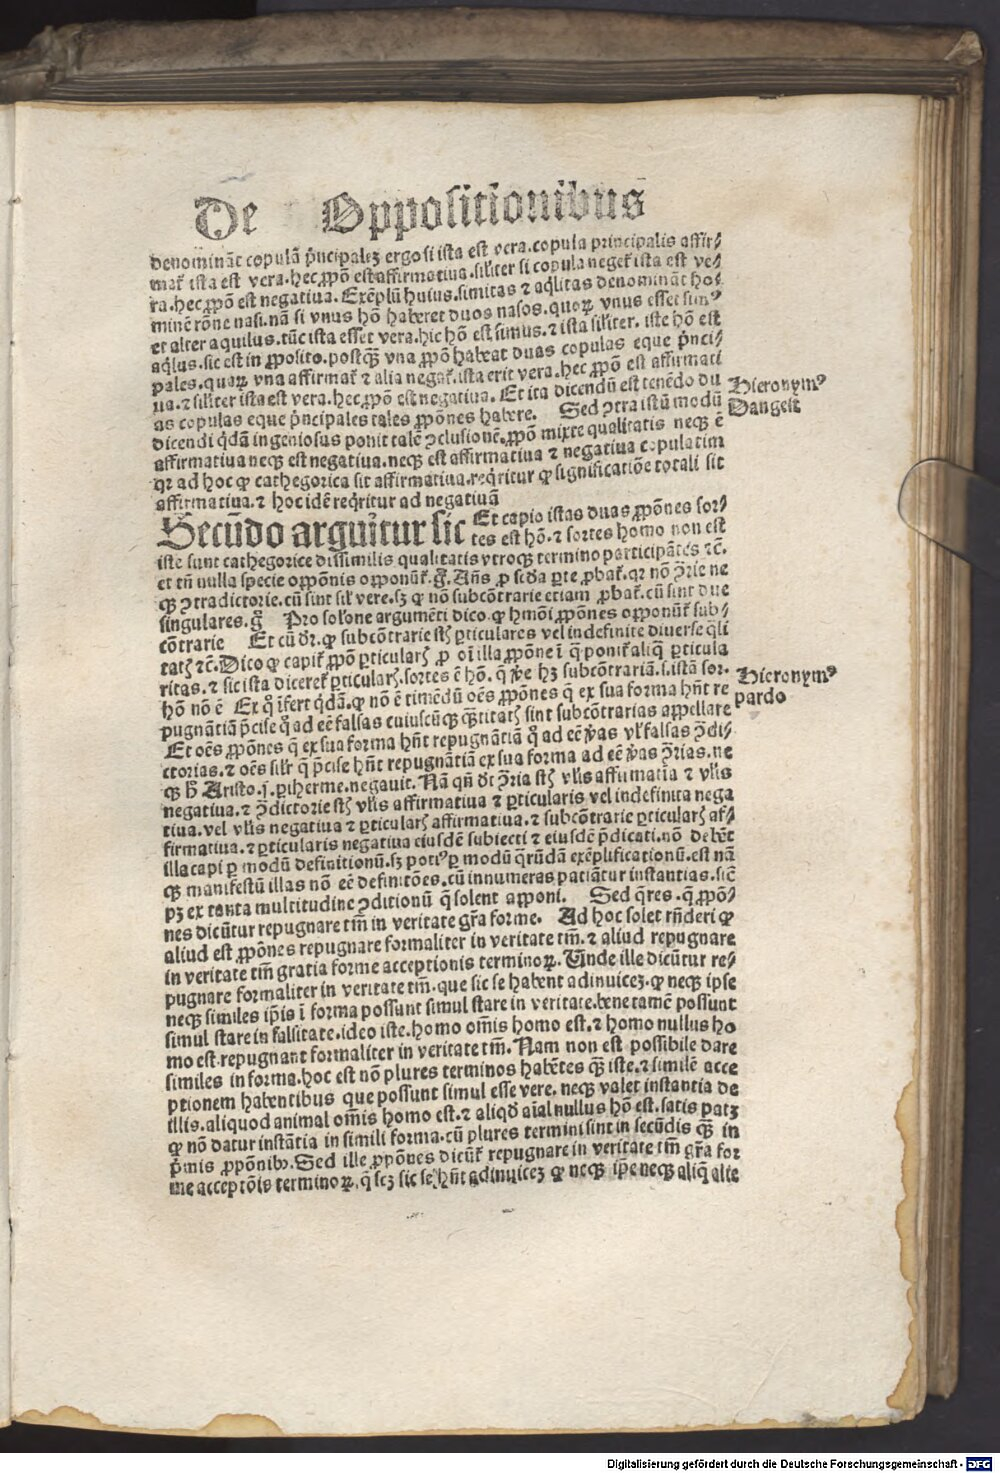 De Oppositionibus
denominãt copulã p̃ncipalẽ ergo si ista est vera. copula principalis affir⸗
mat̃ ista est vera. hec ꝓpõ est affirmatiua. siliter si copula neget̃ ista est ve⸗
ra. hec ꝓpõ est negatiua. Exẽplũ huius. simitas ⁊ aq̃litas denominãt ho⸗
minẽ rõne nasi. nã si vnus hõ haberet duos nasos. quoꝝ vnus esset simꝰ
et alter aquilus. tũc ista esset vera. hic hõ est simus. ⁊ ista siliter. iste hõ est
aq̃lus. sic est in ꝓposito. postqꝫ vna ꝓpõ habeat duas copulas eque p̃nci⸗
pales. quaꝝ vna affirmat̃ ⁊ alia negat̃. ista erit vera. hec ꝓpõ est affirmati
ua. ⁊ siliter ista est vera. hec ꝓpõ est negatiua. Et ita dicendũ est tenẽdo du
as copulas eque p̃ncipales tales ꝓpõnes habere. Sed ꝯtra istũ modũ
Hieronymꝰ
Dangest
dicendi q̃dã ingeniosus ponit talẽ ꝯclusionẽ. ꝓpõ mixte qualitatis neqꝫ ẽ
affirmatiua neqꝫ est negatiua. neqꝫ est affirmatiua ⁊ negatiua copulatim
qꝛ ad hoc ꝙ cathegorica sit affirmatiua. req̃ritur ꝙ significatiõe totali sit
affirmatiua. ⁊ hoc idẽ req̃ritur ad negatiuã
Secũdo arguitur sic Et capio istas duas ꝓpõnes sor⸗
tes est hõ. ⁊ sortes homo non est
iste sunt cathegorice dissimilis qualitatis vtroqꝫ termino participãtes ⁊c̃.
et tñ nulla specie oppõnis opponũt̃. g̃. Añs ꝓ scđa ꝑte ꝓbat̃. qꝛ nõ ꝯ̃rie ne
qꝫ ꝯtradictorie. cũ sint sil̃ vere. sꝫ ꝙ nõ subcõtrarie etiam ꝓbat̃. cũ sint due
singulares. g̃ Pro sol̃one argumẽti dico ꝙ hmõi ꝓpõnes opponũt̃ sub⸗
cõtrarie Et cũ dr̃. ꝙ subcõtrarie st̃ ꝑticulares vel indefinite diuerse q̃li
tatꝭ ⁊c̃. Dico ꝙ capit̃ ꝓpõ ꝑticularꝭ ꝓ oĩ illa ꝓpõne ĩ q̃ ponit̃ aliq̃ ꝑticula
ritas. ⁊ sic ista diceret̃ ꝑticularꝭ. sortes ẽ hõ. q̃ hꝫ subcõtrariã. s. istã sor.
Hieronymꝰ
pardo
hõ nõ ẽ Ex q̊ ĩfert q̃dã. ꝙ nõ ẽ timẽdũ oẽs ꝓpõnes q̃ ex sua forma hñt re
pugnãtiã p̃cise q̊ ad eẽ falsas cuiuscũqꝫ qꝫtitatꝭ sint subcõtrarias appellare
Et oẽs ꝓpõnes q̃ ex sua forma hñt repugnãtiã q̊ ad eẽ ṽas vl̃ falsas ꝯ̃di⸗
ctorias. ⁊ oẽs sil̃r q̃ p̃cise hñt repugnãtiã ex sua forma ad eẽ ṽas ꝯ̃rias. ne
qꝫ h̃ Aristo. j. ꝑiherme. negauit. Nã qñ dt̃ ꝯ̃ria st̃ vl̃is affirmatia ⁊ vl̃is
negatiua. ⁊ ꝯ̃dictorie st̃ vl̃is affirmatiua ⁊ ꝑticularis vel indefinita nega
tiua. vel vl̃is negatiua ⁊ ꝑticularꝭ affirmatiua. ⁊ subcõtrarie ꝑticularꝭ af⸗
firmatiua. ⁊ ꝑticularis negatiua eiusdẽ subiecti ⁊ eiusdẽ p̃dicati. nõ debẽt
illa capi ꝑ modũ definitionũ. sꝫ potiꝰ ꝑ modũ q̃rũdã exẽplificationũ. est nã
qꝫ manifestũ illas nõ eẽ definitões. cũ innumeras patiãtur instantias. sicẽ
pꝫ ex tanta multitudine ꝯditionũ q̃ solent apponi. Sed q̃res. q̃ ꝓpõ⸗
nes dicũtur repugnare tm̃ in veritate gr̃a forme. Ad hoc solet rñderi ꝙ
aliud est ꝓpõnes repugnare formaliter in veritate tm̃. ⁊ aliud repugnare
in veritate tm̃ gratia forme acceptionis terminoꝝ. Unde ille dicũtur re⸗
pugnare formaliter in veritate tm̃. que sic se habent adinuicẽ. ꝙ neqꝫ ipse
neqꝫ similes ip̃is ĩ forma possunt simul stare in veritate. bene tamẽ possunt
simul stare in falsitate. ideo iste. homo om̃is homo est. ⁊ homo nullus ho
mo est. repugnant formaliter in veritate tm̃. Nam non est possibile dare
similes in forma. hoc est nõ plures terminos habẽtes qꝫ iste. ⁊ similẽ acce
ptionem habentibus que possunt simul esse vere. neqꝫ valet instantia de
illis. aliquod animal om̃is homo est. ⁊ aliqđ aĩal nullus hõ est. satis patꝫ
ꝙ nõ datur instãtia in simili forma. cũ plures termini sint in secũdis qꝫ in
p̃mis ꝓpõnibꝰ. Sed ille ꝓpõnes dicũt̃ repugnare in veritate tm̃ gr̃a for
me acceptõis terminoꝝ. q̃ scꝫ sic se hñt adinuicẽ ꝙ neqꝫ ip̃e neqꝫ aliq̃ alie
Digitalisierung gefördert durch die Deutsche Forschungsgemeinschaft - DFG